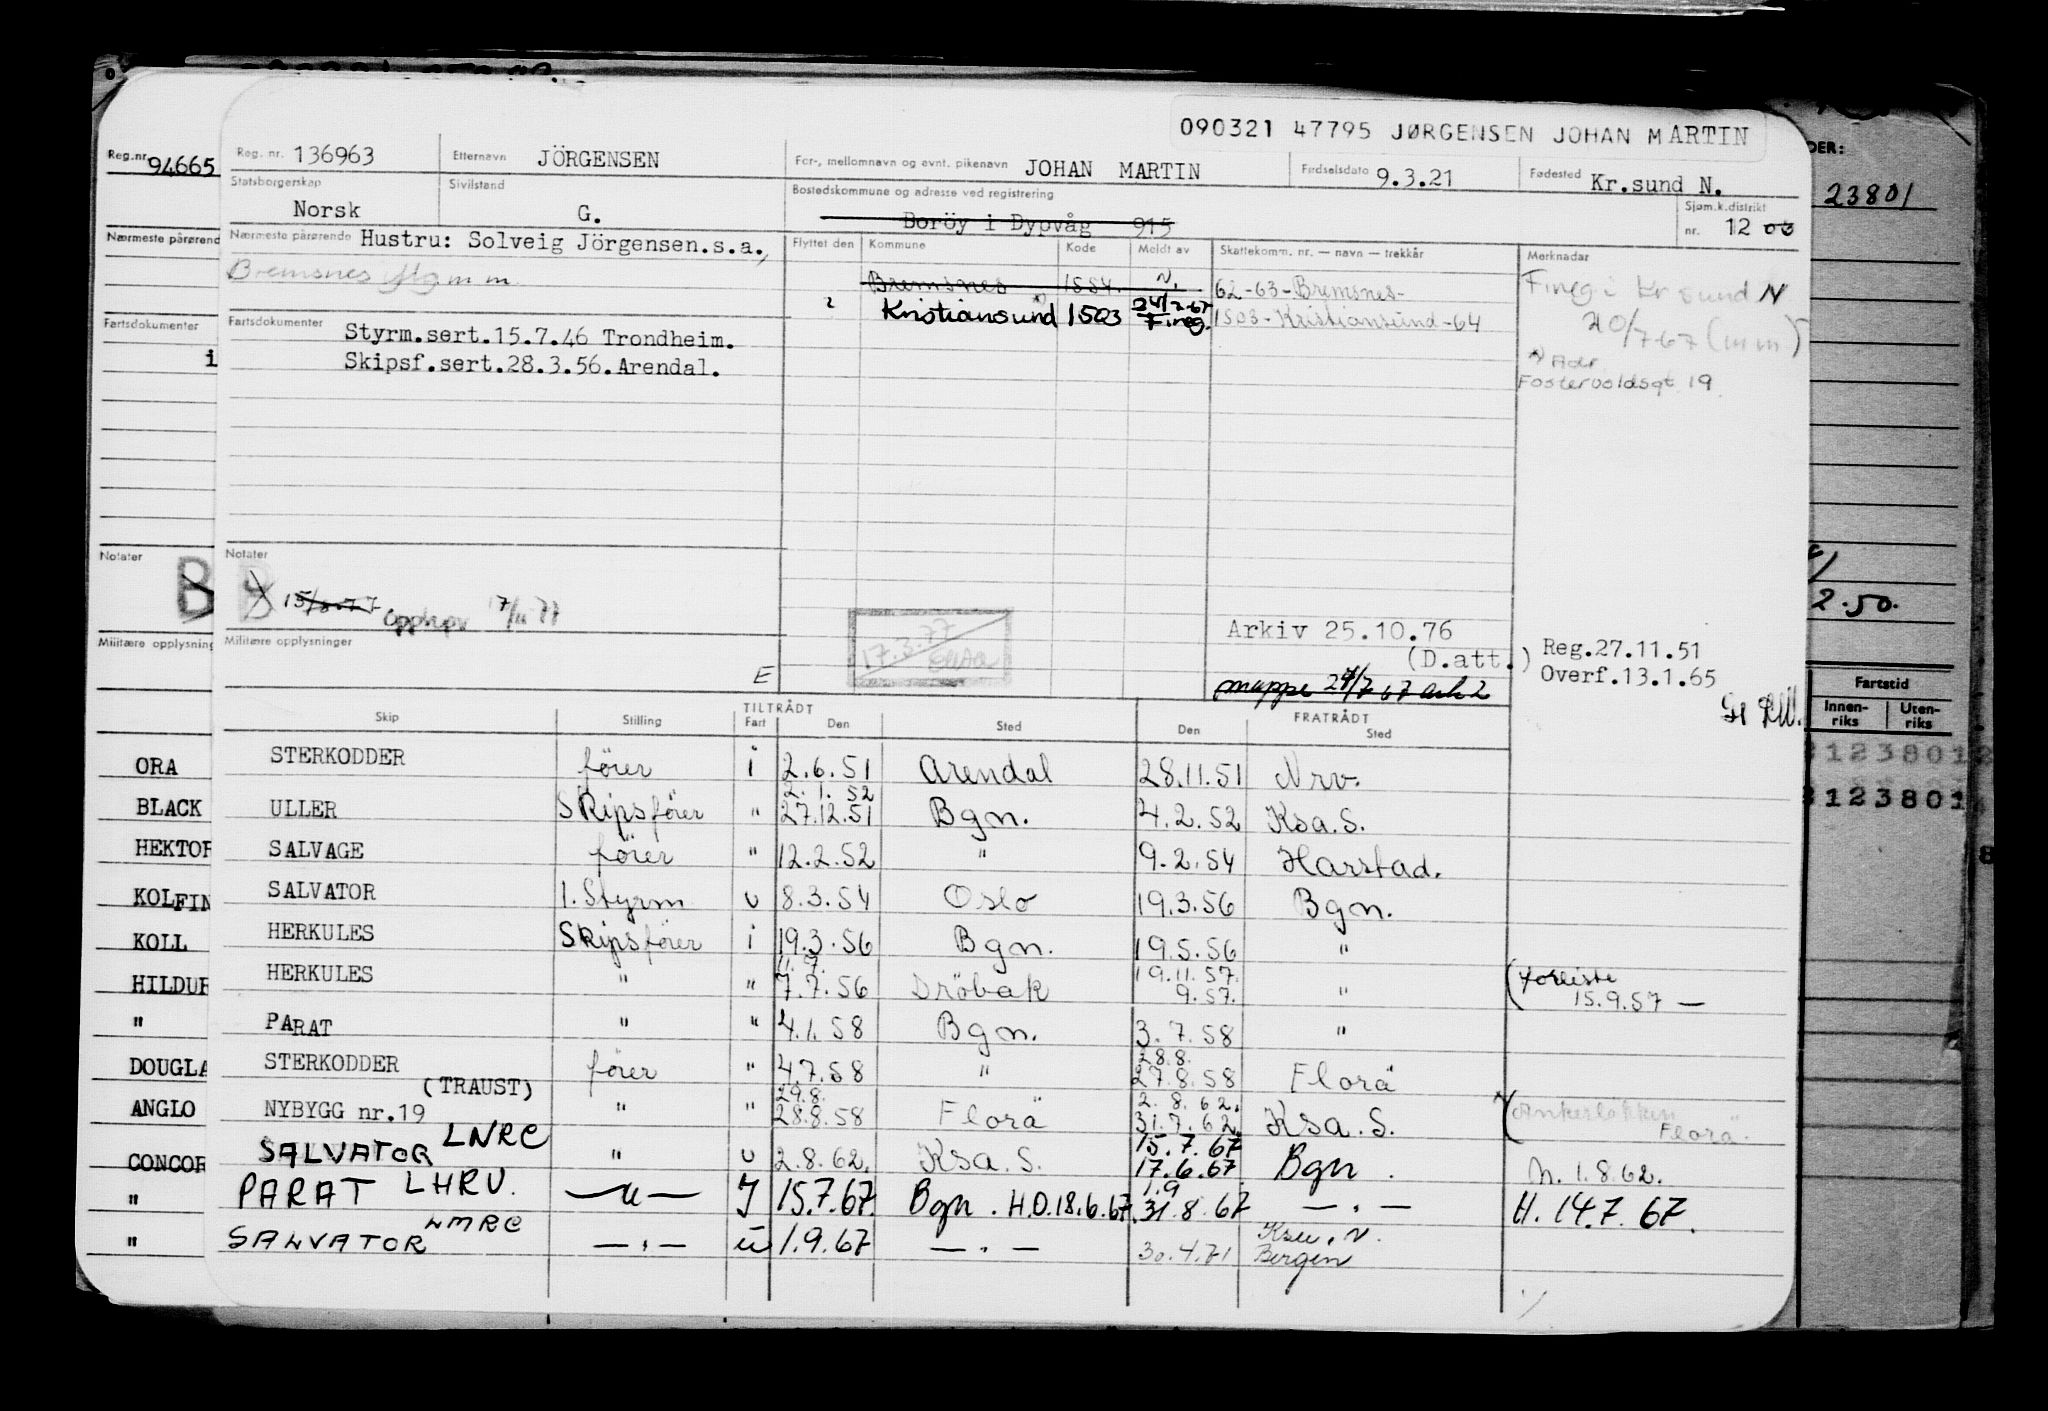 090321 47795 JØRGENSEN JOHAN MARTIN
Reg. nr. 136963 Etternavn JÖRGENSEN For-, mellomnavn og evnt. pikenavn JOHAN MARTIN Fødselsdato 9.3.21 Fødested Kr.sund N.
Statsborgerskap Norsk Sivilstand G. Bostedskommune og adresse ved registrering Boröy i Dypvåg 915 Sjøm.k.distrikt nr. 12 03
Nærmeste pårørende Hustru: Solveig Jörgensen.s.a.,
Bremsnes
Flyttet den Kommune Kode Meldt av Skattekomm. nr. — navn — trekkår Merknader
Bremsnes 1554. N. 62-63-Bremsnes-
Kristiansund 1503 24/2-67 Fineg. 1503-Kristiansund-64
Fineg i Kr sund N
20/7 67 (mm)
Adr.
Fostervoldsgt 19
Fartsdokumenter Styrm.sert.15.7.46 Trondheim.
Skipsf.sert.28.3.56.Arendal.
Notater
B 15/8-77 Opphev 7/11 77
Militære opplysninger
E
17.3.77
Arkiv 25.10.76
(D.att.)
mappe 24/7 67 ark 2
Reg.27.11.51
Overf.13.1.65
TILTRÅDT FRATRÅDT
Skip Stilling Fart Den Sted Den Sted
STERKODDER förer i 2.6.51 Arendal 28.11.51 Nrv.
2.1.52
ULLER Skipsförer " 27.12.51 Bgn. 4.2.52 Ksa.S.
SALVAGE förer " 12.2.52 " 9.2.54 Harstad.
SALVATOR 1.Styrm u 8.3.54 Oslo 19.3.56 Bgn.
HERKULES Skipsförer i 19.3.56 Bgn. 19.5.56 "
11.7. 19.11.57.
HERKULES " " 7.7.56 Dröbak 9.57. " (forliste
15.9.57 —
PARAT " " 4.1.58 Bgn. 3.7.58 "
28.8.
STERKODDER förer " 4.7.58 " 27.8.58 Florö
(TRAUST) 29.8. 2.8.62.
NYBYGG nr.19 " " 28.8.58 Florö 31.7.62. Ksa.S. (Ankerløkken
Florö.
15.7.67
SALVATOR LNRC " u 2.8.62. Ksa.S. 17.6.67 Bgn. N. 1.8.62.
1.9
PARAT LHRU. —"— I 15.7.67 Bgn. H.O.18.6.67. 31.8.67 — . — H. 14.7.67.
SALVATOR LMRC — . — u 1.9.67 — . — 30.4.71 Ksu. N.
Bergen
Reg.nr 94665
Nærmeste pårørend
Fartsdokumenter
i
Notater
B
Militære opplysning
ORA
BLACK
HEKTOR
KOLFIN
KOLL
HILDUR
"
DOUGLA
ANGLO
CONCOR
"
"
DER:
23801
2.50.
Fartstid
Innen-riks Uten-riks
1238012
123801
8